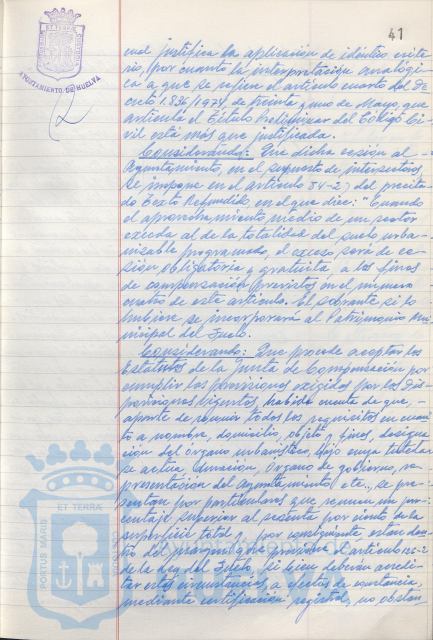 41
AYUNTAMIENTO DE HUELVA
cual justifica la aplicación de idéntico crite
rio, por cuanto la interpretación analógi
ca a que se refiere el artículo cuarto del De
creto 1.836/1974, de treinta y uno de Mayo, que
articula el Título Preliminar del Código Ci
vil está más que justificada.
Considerando: Que dicha cesión al
Ayuntamiento, en el supuesto de intersectores
se impone en el artículo 84-2) del precita
do Texto Refundido, en el que dice: "Cuando
el aprovechamiento medio de un sector
exceda al de la totalidad del suelo urba-
nizable programado, el exceso será de ce-
sión obligatoria y gratuita a los fines
de compensación previstos en el número
cuatro de este artículo. El sobrante si lo
hubiere se incorporará al Patrimonio Mu
nicipal del Suelo.
Considerando: Que procede aceptar los
Estatutos de la Junta de Compensación por
cumplir las previsiones exigidas por las Dis
posiciones vigentes, habida cuenta de que,
aparte de reunir todos los requisitos en cuan
to a nombre, domicilio, objeto y fines, designa
ción del órgano urbanístico bajo cuya tutela
se actúa, duración, órgano de gobierno, re
presentación del Ayuntamiento, etc., se pre-
sentan por particulares que reunen un por-
centaje superior al sesenta por ciento de la
superficie total, y por consiguiente, están den
tro del que previene el artículo 126-2
de la Ley del Suelo, si bien deberán acredi-
tar estas circunstancias, a efectos de constancia,
mediante certificación registral, no obstan
PORTUS MARIS ET TERRAE